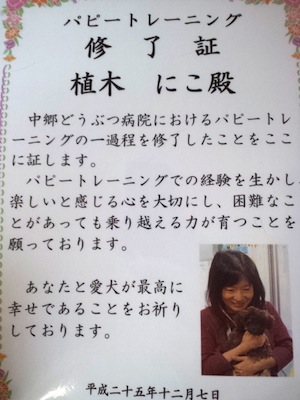 パピートレーニング
修了証
植木 にこ殿
中郷どうぶつ病院におけるパピートレ
ーニングの一過程を修了したことをここ
に証します。
パピートレーニングでの経験を生かし、
楽しいと感じる心を大切にし、困難なこ
とがあっても乗り越える力が育つことを
願っております。
あなたと愛犬が最高に
幸せであることをお祈り
しております。
平成二十五年十二月七日